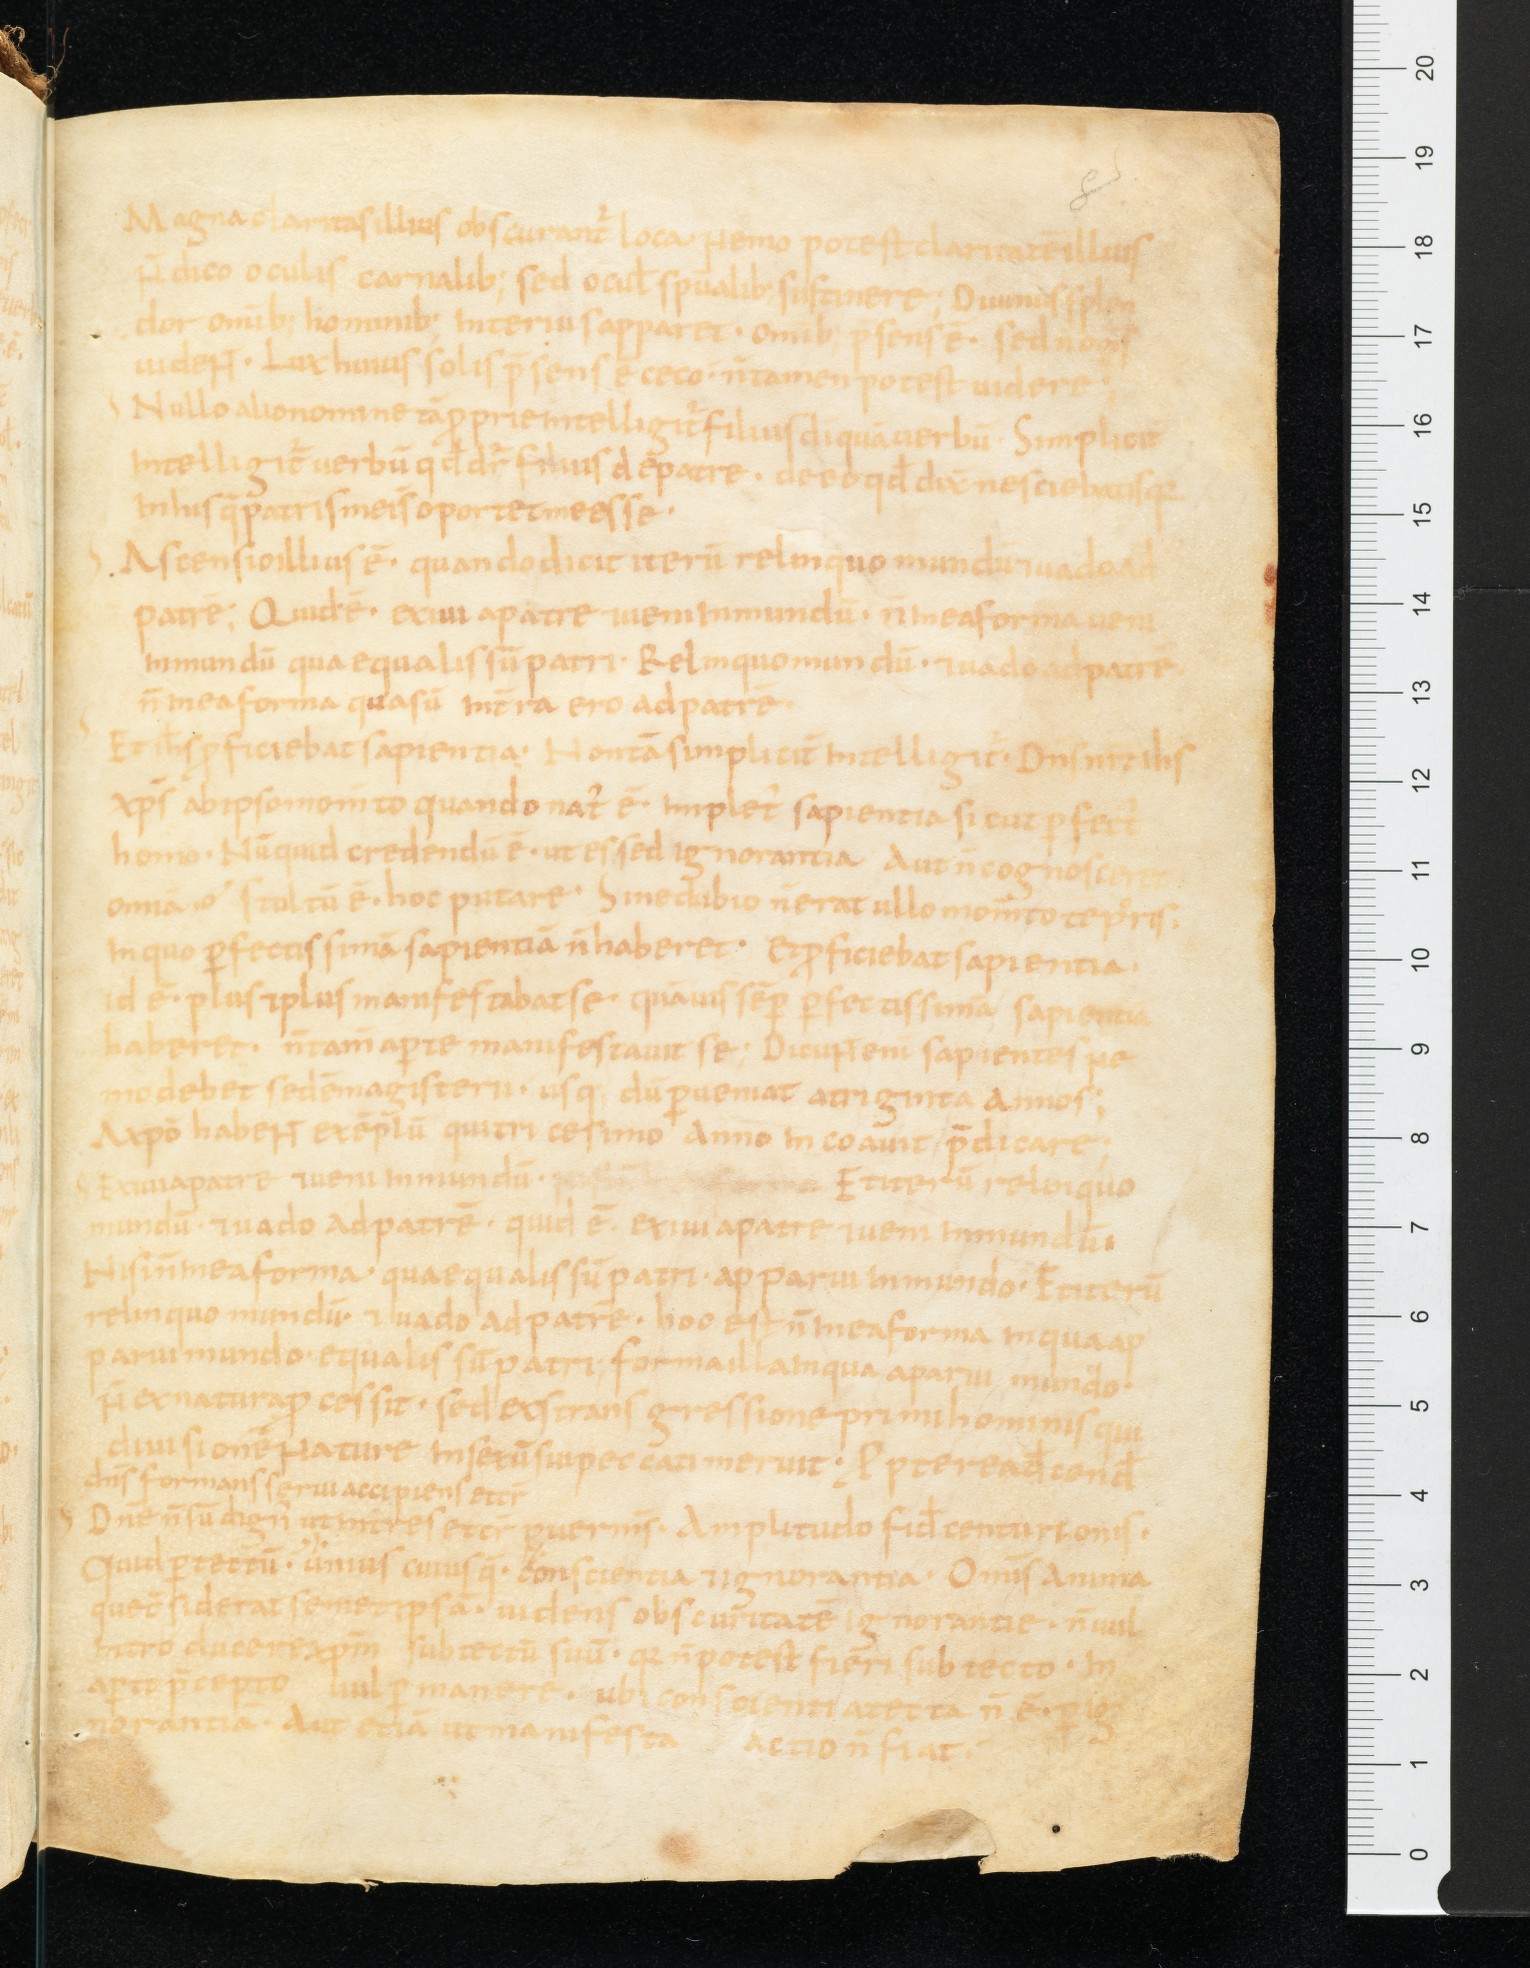 Magna claritas illius obscurant᷑ loca. Nemo potest claritatē illius
n̄ dico oculis carnalib; sed ocul̄ sp̄ualib; sustinere; Diuinus splen
dor om̄ib; hominib; Interius apparet · om̄ib; p̄sens ē · sed n̄ om̄s
uideɴᴛ · Lux huius solis p̄sens ē ceco · n̄ tamen potest uidere;
Nullo alio nomine tā ꝓprie Intelligit᷑ filius dī quā uerbū · Simplicit̄
Intelligit᷑ uerbū qd̄ dr̄ filius dē patre · de eo qd̄ dix̄ nesciebatis qꝛ
In his q̄ patris mei s̄ oportet me esse ·
Ascensio illius ē · quando dicit iterū relinquo mundū ⁊ uado ad
patrē; Quid ē · exiui a patre ⁊ ueni In mundū · n̄ In ea forma ueni
In mundū qua equalis sū patri · Relinquo mundū · ⁊ uado ad patrē
n̄ In ea forma qua sū In t̄ra ero ad patrē ·
Et ih̄s ꝓficiebat sapientia · Non tā simplicit̄ Intelligit᷑ · Dn̄s nr̄ ih̄s
xp̄s ab ipso mom̄to quando nat᷑ ē · Implet᷑ sapientia sicut ꝑfect᷑
homo · Nūquid credendū ē · ut esset Ignorantia Aut n̄ cognosceret
omnia · Stultū ē · hoc putare · Sine dubio n̄ erat ullo mom̄to tēp̄ris ·
In quo ꝑfectissimā sapientiā n̄ haberet · Et ꝓficiebat sapientia ·
id ē · plus ⁊ plus manifestabat se · quāuis sēꝑ ꝑfectissimā sapientiā
haberet · n̄ tam̄ aꝑte manifestauit se; Dicuɴᴛ eni sapientes Ne
mo debet sedē magisterii · usq; dū ꝑueniat a triginta Annos;
A xp̄o habeɴᴛ exēplū qui tricesimo Anno Incoauit p̄dicare;
Exiui a patre ⁊ ueni In mundū · Et iterū relinquo
mundū · ⁊ uado ad patrē · quid ē · exiui a patre ⁊ ueni In mundū ·
Nisi n̄ In ea forma · qua equalis sū patri · apparui In mundo · Et iterū
relinquo mundū · ⁊ uado ad patrē · hoc est n̄ In ea forma In qua ap
parui mundo · equalis sū patri; forma illa In qua aparui mundo ·
n̄ ex natura ꝓcessit · sed ex transgressione primi hominis qui
diuisionē Nature In sexū sui peccati meruit · ꝓpterea d̄
dn̄s formam serui accipiens et cr̄
Dn̄e n̄ sū dign᷑ ut Intres et cr̄ Amplitudo fid̄ centurionis ·
Quid ꝑ tectū · unius cuiusq; · conscientia ⁊ ignorantia · Omīs Anima
que c̄siderat semetipsā · uidens obscuritatē Ignorantie · n̄ uul
Introducere xp̄m sub tectū suū · qꝛ n̄ potest fieri sub tecto · In
aꝑto p̄cepto uul ꝑmanere · ubi conscientia tecta n̄ ē · ꝑ ig
norantiā · Aut etiā ut manifesta Actio n̄ fiat ·